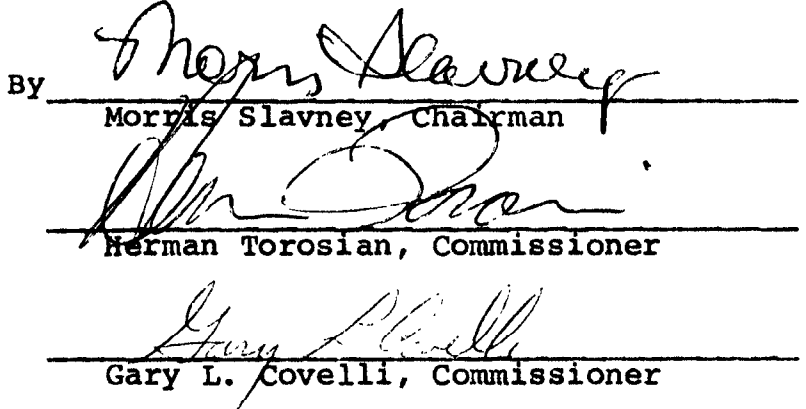 Morris Slavney
By
Morris Slavney, Chairman
Herman Torosian
Herman Torosian, Commissioner
Gary L. Covelli
Gary L. Covelli, Commissioner